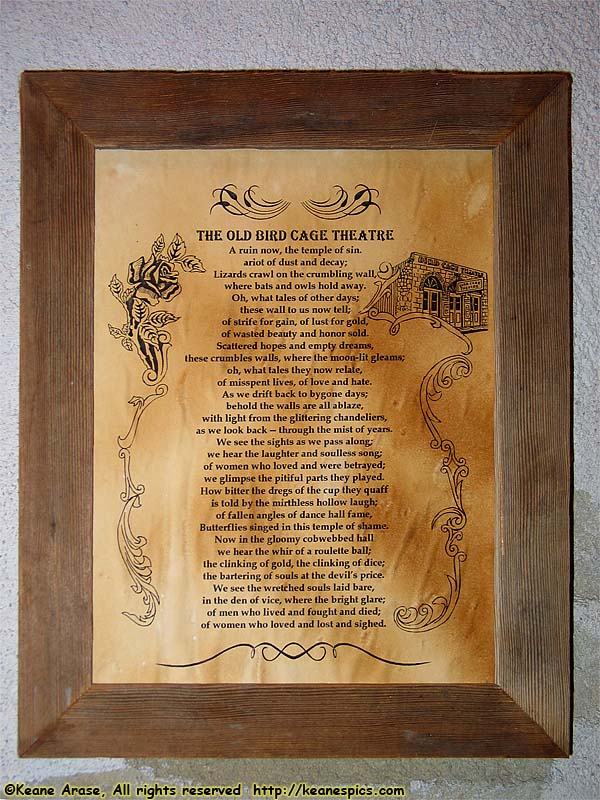 THE OLD BIRD CAGE THEATRE
A ruin now, the temple of sin.
ariot of dust and decay;
Lizards crawl on the crumbling wall,
where bats and owls hold away.
Oh, what tales of other days;
these wall to us now tell;
of strife for gain, of lust for gold,
of wasted beauty and honor sold.
Scattered hopes and empty dreams,
these crumbles walls, where the moon-lit gleams;
oh, what tales they now relate,
of misspent lives, of love and hate.
As we drift back to bygone days;
behold the walls are all ablaze,
with light from the glittering chandeliers,
as we look back — through the mist of years.
We see the sights as we pass along;
we hear the laughter and soulless song;
of women who loved and were betrayed;
we glimpse the pitiful parts they played.
How bitter the dregs of the cup they quaff
is told by the mirthless hollow laugh;
of fallen angles of dance hall fame,
Butterflies singed in this temple of shame.
Now in the gloomy cobwebbed hall
we hear the whir of a roulette ball;
the clinking of gold, the clinking of dice;
the bartering of souls at the devil's price.
We see the wretched souls laid bare,
in the den of vice, where the bright glare;
of men who lived and fought and died;
of women who loved and lost and sighed.
BIRD CAGE THEATRE
©Keane Arase, All rights reserved http://keanespics.com/